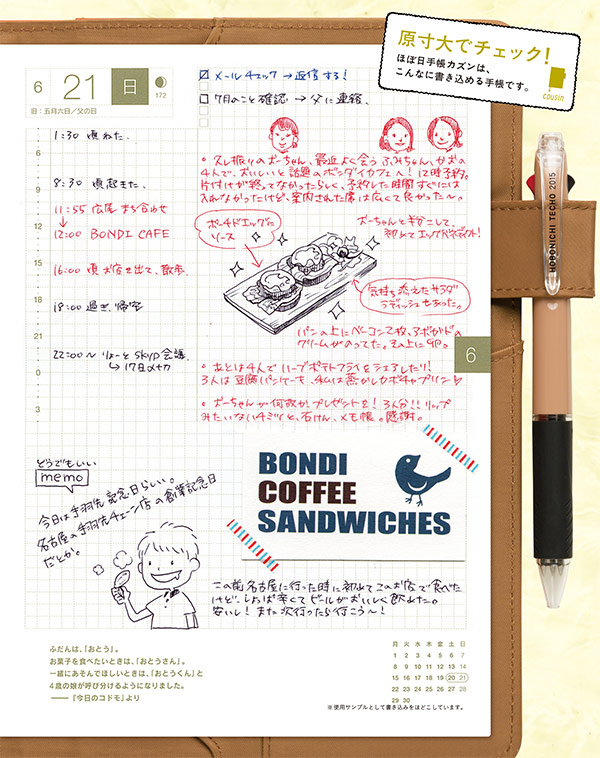 原寸大でチェック!
ほぼ日手帳カズンは、
こんなに書き込める手帳です。
cousin
6 21 日
172
旧:五月六日/父の日
メールチェック→返信する!
7月のこと確認→父に連絡、
1:30 頃ねた、
6
8:30 頃起きた、
9
11:55 広尾 まち合わせ
↓
12:00 BONDI CAFE
12
15
16:00 頃お店を出て、散歩、
18
18:00 過ぎ、帰宅
21
22:00〜 skyp会議、
0
3
久し振りのおーちゃん、最近よく会うふみちゃん、かおの
4人で、おいしいと話題のボンダイカフェへ! 12時予約。
片付けが終ってなかったらしく、予約した時間すぐには
入れなかったけど、案内された席は広くて良かった〜。
ポーチドエッグに
ソース
おーちゃんとギかこして、
初めてエッグベネディクト!
気持ち添えたサラダ
ラディッシュもあった。
パンの上にベーコン2枚、アボカドの
クリームがのってた。その上に卵。
あとは4人でハーブポテトフライをシェアしたり!
3人は豆腐パンケーキ、私は蒸かしカボチャプリン♡
おーちゃんが何故かプレゼントを! 3人分!! リップ
みたいないい4ミツと、石けん、メモ帳。感謝。
6
どうでもいい
memo
今日は手羽先記念日らしい。
名古屋の手羽先チェーン店の創業記念日
だとか。
BONDI
COFFEE
SANDWICHES
この前名古屋に行った時に初めてこのお店で食べた
けど、しょっぱ辛くてビールがおいしく飲めた。
安いし! また次行ったら行こう〜!
ふだんは、「おとう」。
お菓子を食べたいときは、「おとうさん」。
一緒にあそんでほしいときは、「おとうくん」と
4歳の娘が呼び分けるようになりました。
——『今日のコドモ』より
月 火 水 木 金 土 日
1 2 3 4 5 6 7
8 9 10 11 12 13 14
15 16 17 18 19 20 21
22 23 24 25 26 27 28
29 30
※使用サンプルとして書き込みをほどこしています。
HOBONICHI TECHO 2015